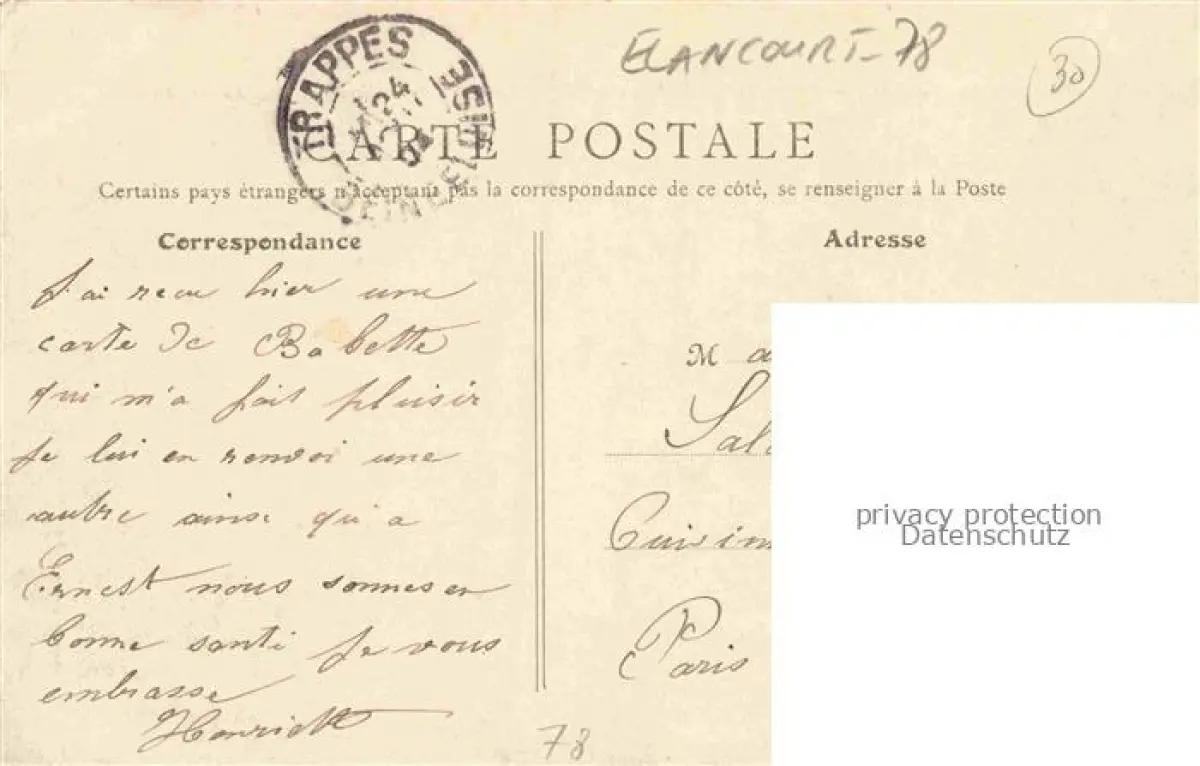 ELANCOURT-78
30
TRAPPES
24
SEINE-ET-OISE
CARTE POSTALE
Certains pays étrangers n'acceptant pas la correspondance de ce côté, se renseigner à la Poste
Correspondance
J'ai recu hier une
carte de Babette
qui m'a fait plaisir
je lui en renvoi une
autre ainsi qu'a
Ernest nous sommes en
bonne santé je vous
embrasse
Henriette
Adresse
M a
Sal
Cuisin
Paris
privacy protection
Datenschutz
78